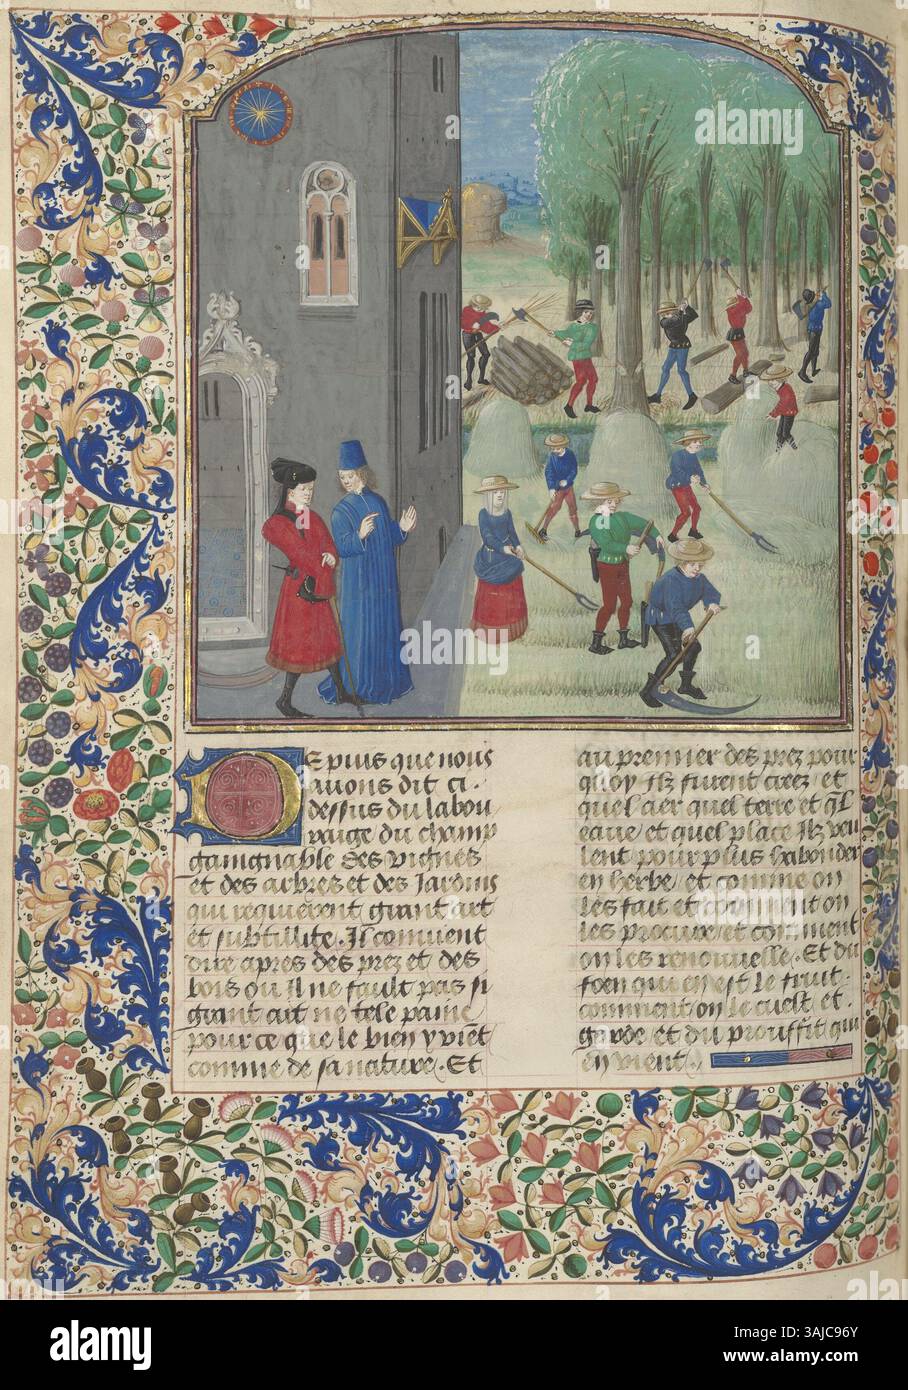 Depuis que nous
auons dit cy
dessus du labou
raige du champ
gaignable des vignes
et des arbres et des Jardins
qui requierent grant art
et subtillite. Il conuient
dire apres des prez et des
bois ou il ne fault pas si
grant art ne tele paine
pour ce que le bien y vient
comme de sa nature. Et
au premier des prez pour
quoy Ilz furent creez / et
quel aer quel terre et ql
eaue / et quel place Ilz veu
lent pour plus habonder
en herbe / et comme on
les fait et comment on
les procure / et comment
on les renouuelle. Et du
foen qui en est le fruit.
comment on le cuelt et.
garde et du prouffit qui
en vient.
a
alamy
Image ID: 3AJC96Y
www.alamy.com